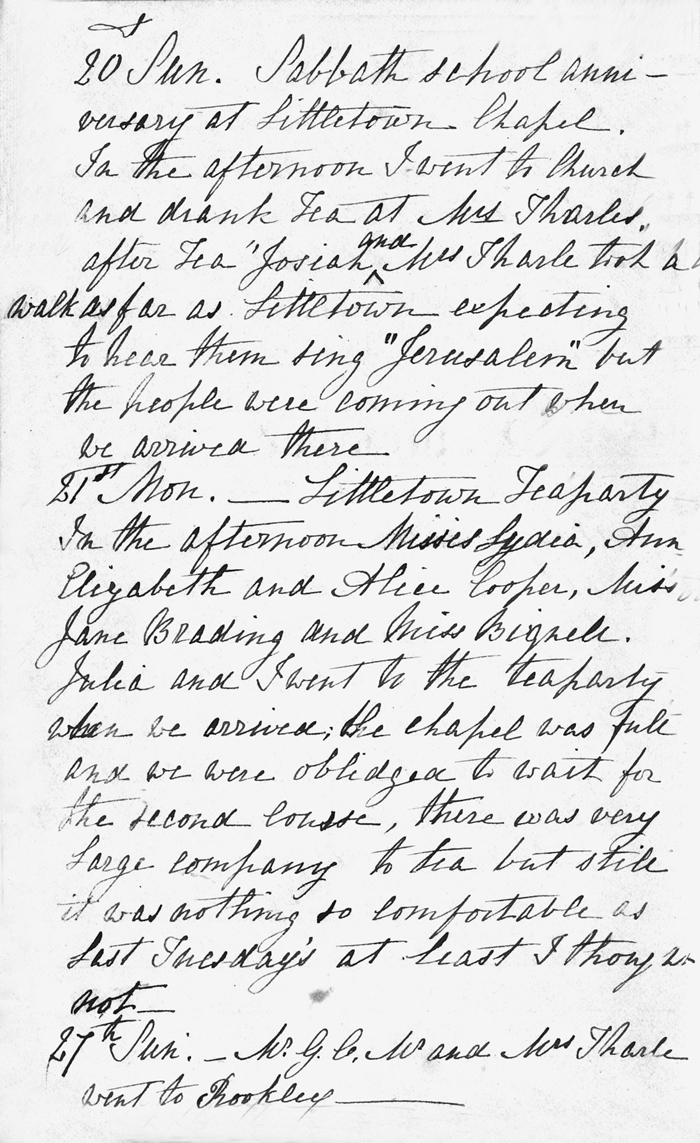 20 Sun. Sabbath school anni-
versary at Littletown Chapel.
In the afternoon I went to Church
and drank Tea at Mrs Tharles,
after Tea "Josiah and Mrs Tharle took a
walk as far as Littletown expecting
to hear them sing "Jerusalem" but
the people were coming out when
we arrived there
21st Mon. — Littletown Teaparty
In the afternoon Misses Lydia, Ann
Elizabeth and Alice Cooper, Miss
Jane Brading and Miss Bignell.
Julia and I went to the teaparty
when we arrived; the chapel was full
and we were oblidged to wait for
the second course, there was very
Large company to tea but still
it was nothing so comfortable as
Last Tuesday's at least I thought
not—
27th Sun. — Mr. G. C. Mr and Mrs Tharle
went to Rookley—